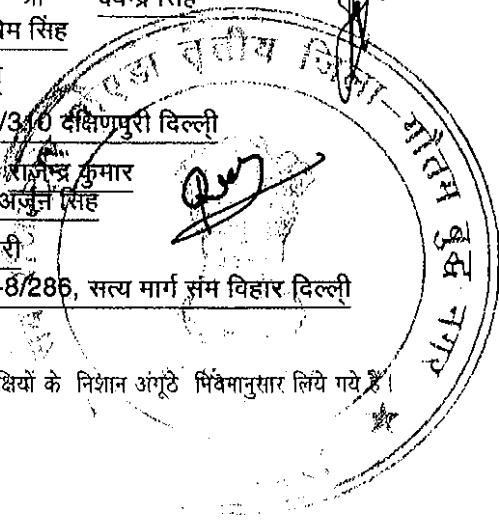 श्री देवेन्द्र सिंह
सिंह
/310 दक्षिणपुरी दिल्ली
राजेन्द्र कुमार
अर्जुन सिंह
री
-8/286, सत्य मार्ग संम विहार दिल्ली
क्षियों के निशान अंगूठे मिवमानुसार लिये गये है।
तृतीय जिला - गौतम बुद्ध नगर